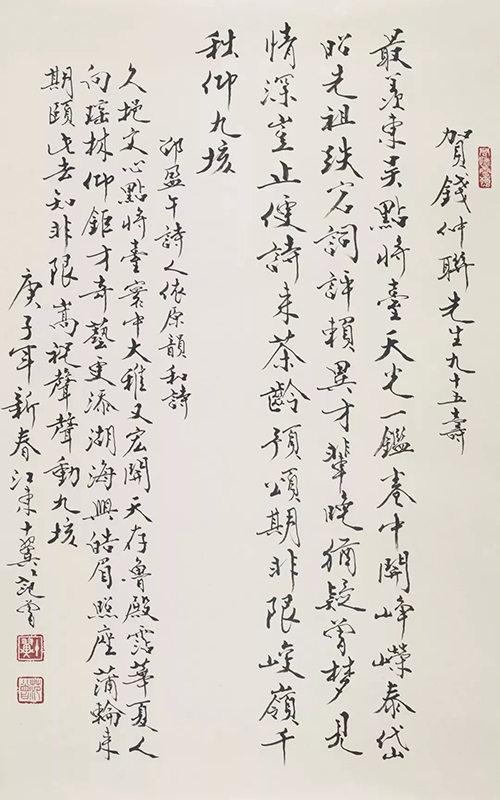 賀錢仲聯先生九十五壽
最羨東吳點將臺天光一鑑卷中開崢嶸泰岱
昭先祖跌宕詞評賴異才輩晚猶疑曾夢見
情深豈止便詩來茶齡預頌期非限峻嶺千
秋仰九垓
邵盈午詩人依原韻和詩
久挹文心點將臺寰中大雅又宏開天存魯殿霑華夏人
向瑤林仰鉅才奇藝更添湖海興皓眉照座蒲輪來
期頤此去知非限嵩祝聲聲動九垓
庚子年新春江東十翼范曾
十翼
范曾